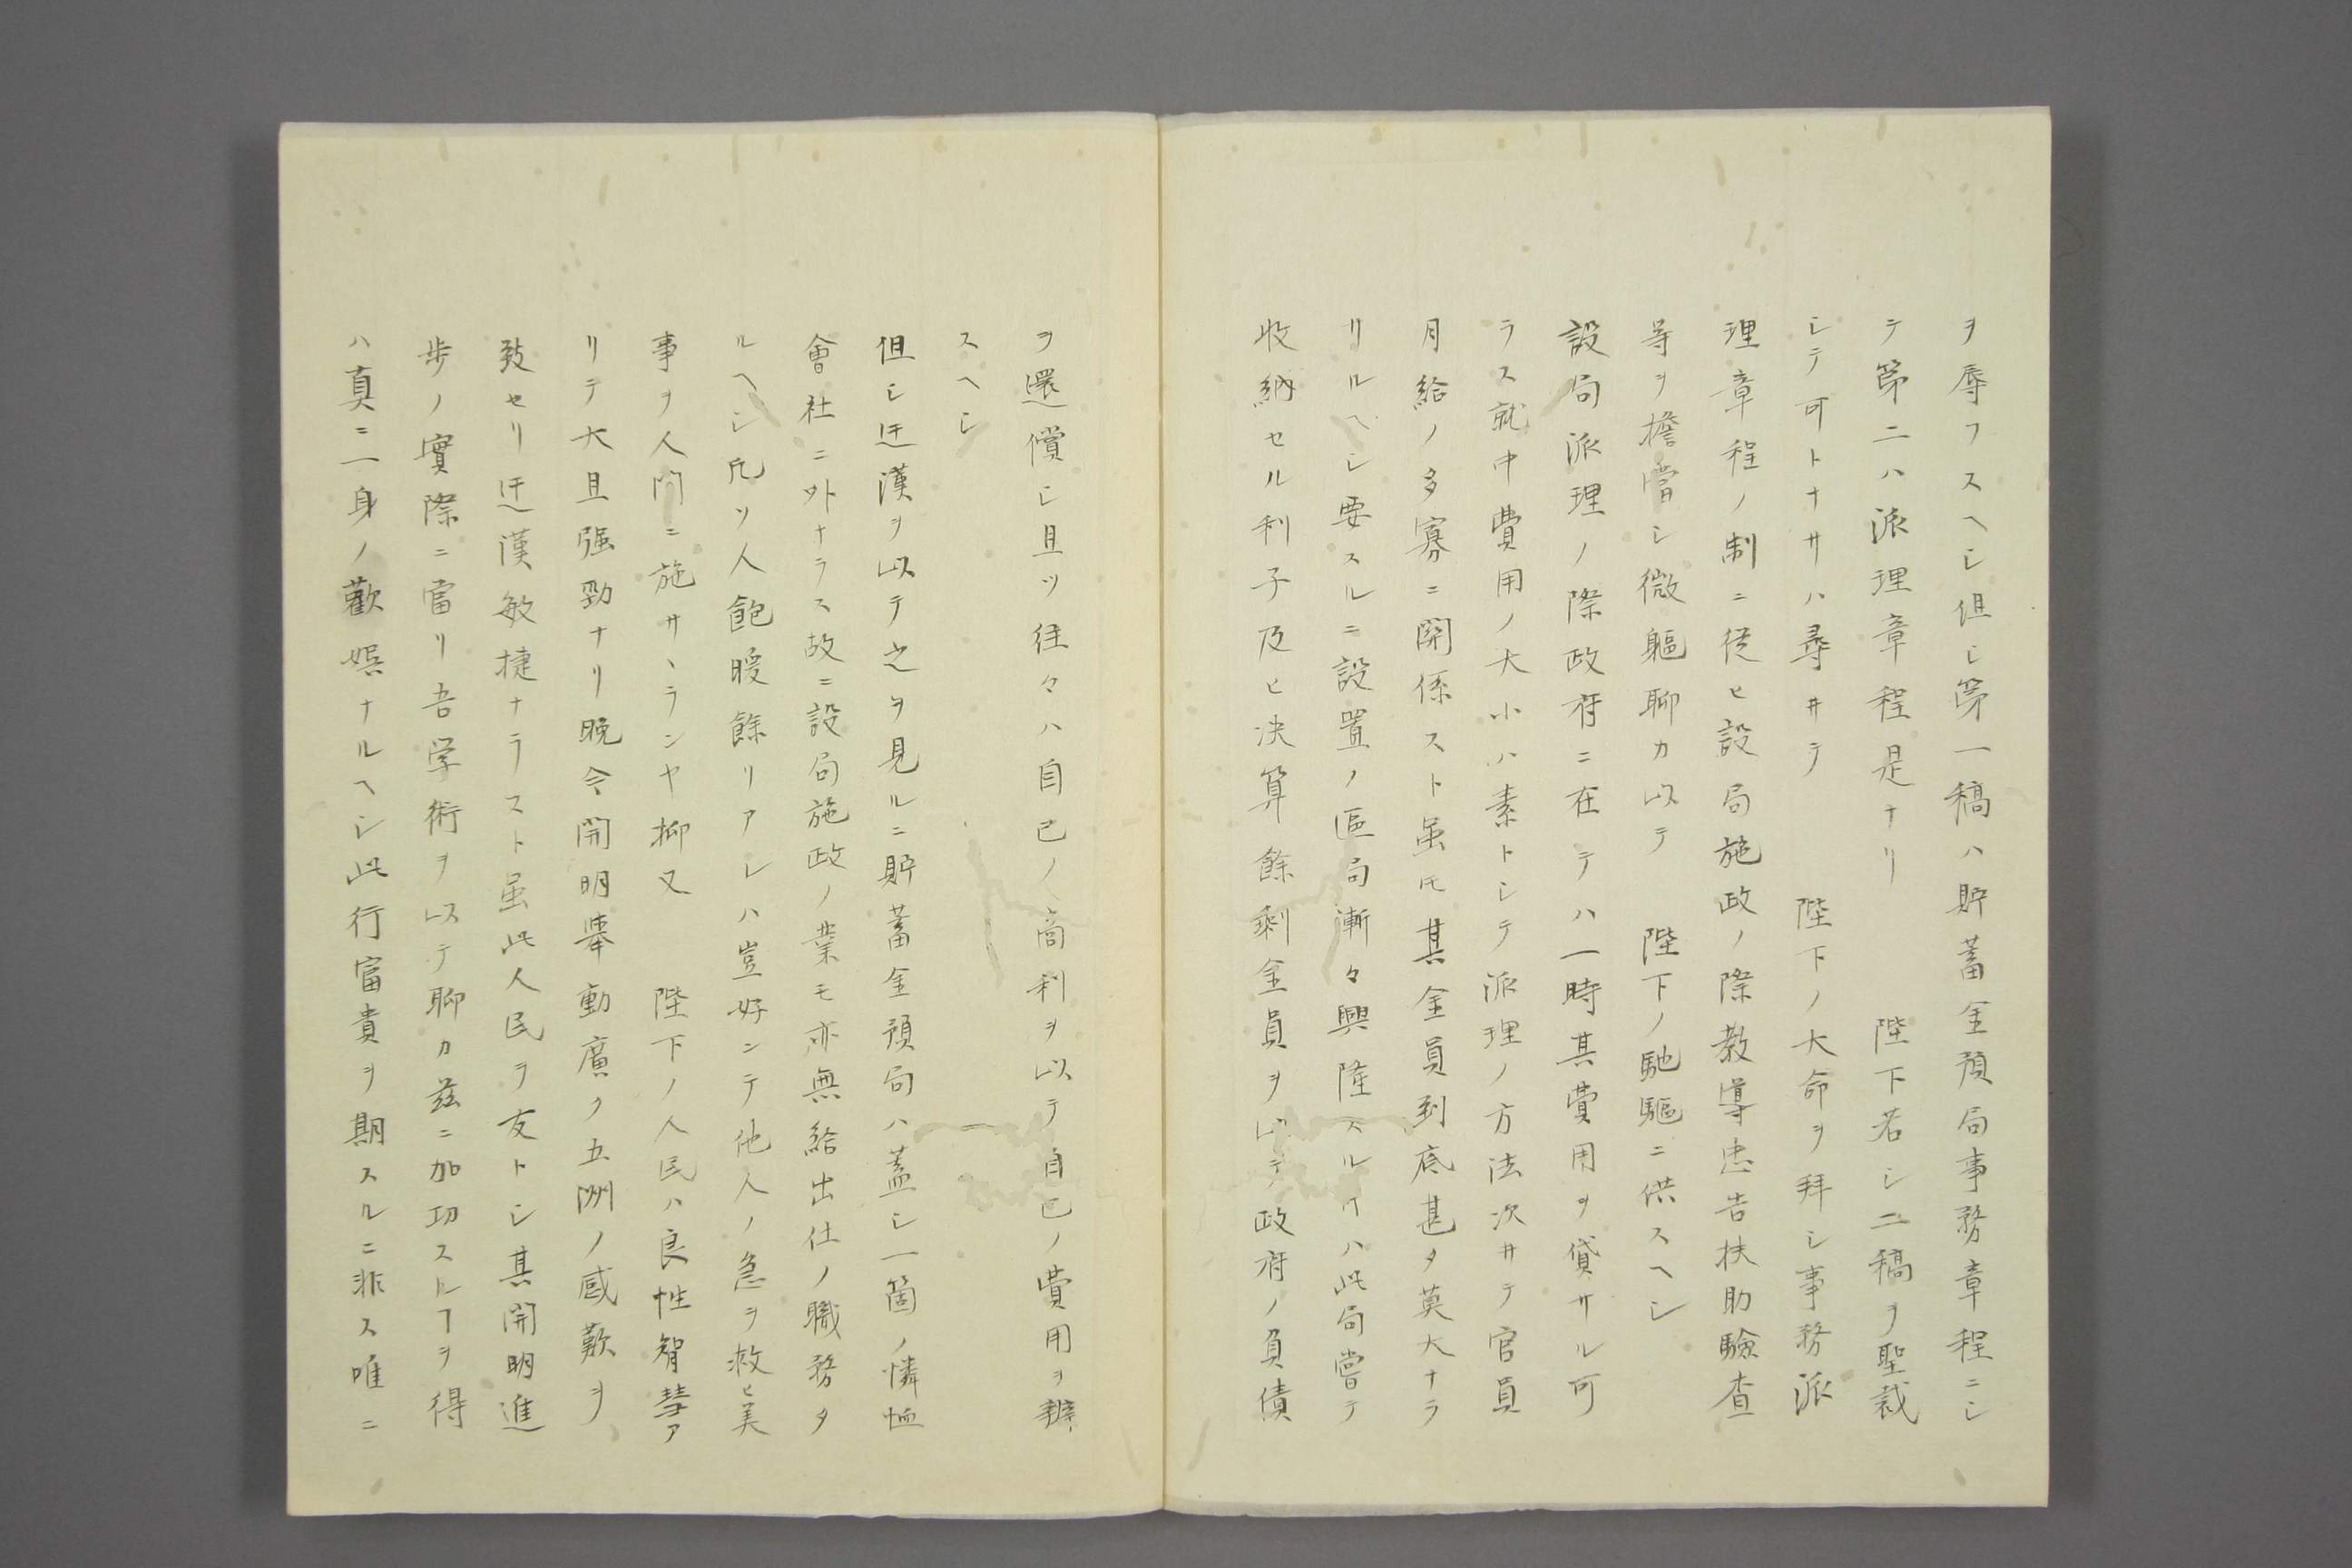 ヲ辱フスヘシ但シ第一稿ハ貯蓄金預局事務章程ニシ
テ第二ハ派理章程是ナリ　陛下若シ二稿ヲ聖裁
シテ可トナサハ尋ヰテ　陛下ノ大命ヲ拜シ事務派
理章程ノ制ニ從ヒ設局施政ノ際教導忠告扶助驗査
等ヲ擔當シ微軀聊カ以テ　陛下ノ馳驅ニ供スヘシ
設局派理ノ際政府ニ在テハ一時其費用ヲ貸サル可
ラス就中費用ノ大小ハ素トシテ派理ノ方法次サテ官員
月給ノ多寡ニ関係スト虽モ其金員到底甚タ莫大ナラ
リルヘシ要スルニ設置ノ區局漸々興隆スルヰハ此局嘗テ
收納セル利子及ヒ决算餘剰金員ヲ以テ政府ノ負債
ヲ還償シ且ツ往々ハ自己ノ商利ヲ以テ自己ノ費用ヲ辨
スヘシ
但シ迂漢ヲ以テ之ヲ見ルニ貯蓄金預局ハ蓋シ一箇ノ憐恤
會社ニ外ナラス故ニ設局施政ノ業モ亦無給出仕ノ職務タ
ルヘシ凡ソ人飽暖餘リアレハ豈好ンテ他人ノ急ヲ救ヒ美
事ヲ人間ニ施サヽランヤ抑又　陛下ノ人民ハ良性智彗ア
リテ大且强勁ナリ晩今開明擧動廣ク五洲ノ感歎ヲ
致セリ迂漢敏捷ナラスト虽此人民ヲ友トシ其開明進
歩ノ實際ニ當リ吾学術ヲ以テ聊カ玆ニ加功スルヿヲ得
ハ真ニ一身ノ歡娯ナルヘシ此行富貴ヲ期スルニ非ス唯ニ